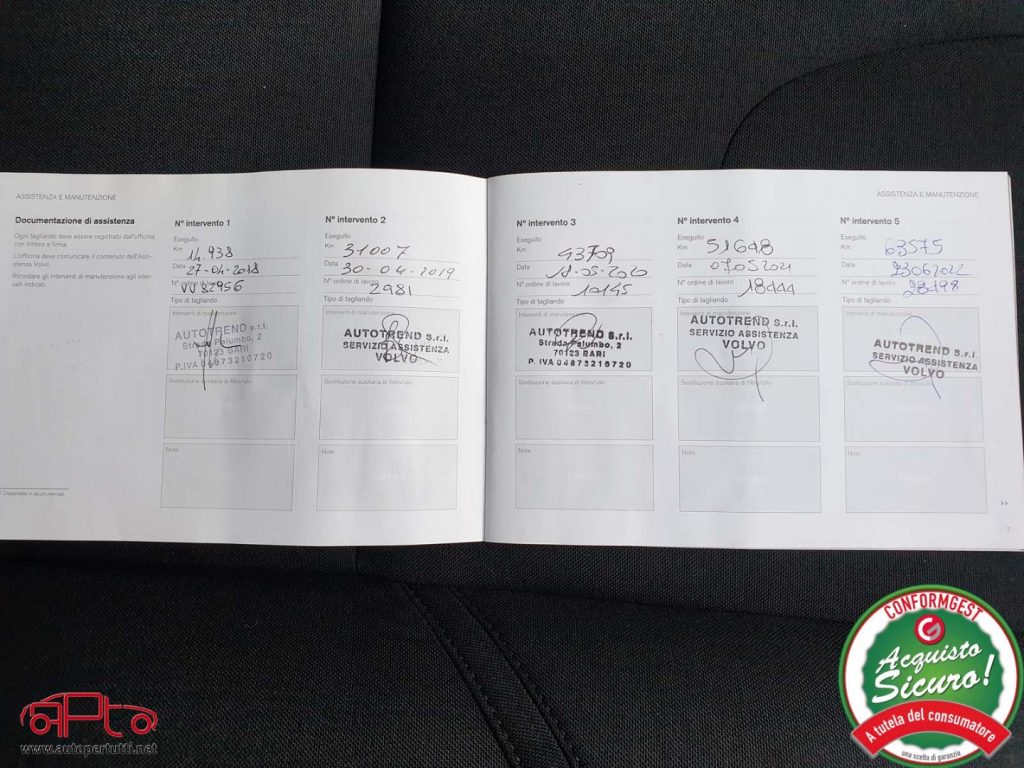 ASSISTENZA E MANUTENZIONE
Documentazione di assistenza
Ogni tagliando deve essere registrato dall'officina
con timbro e firma.
L'officina deve comunicare il contenuto dell'Assi-
stenza Volvo.
Ricordare gli interventi di manutenzione agli inter-
valli indicati.
Disponibile in alcuni mercati.
N° intervento 1
Eseguito
Km 14.938
Data 27-04-2018
N° ordine di lavoro
VU 82956
Tipo di tagliando
Interventi di manutenzione
AUTOTREND s.r.l.
Strada Palumbo, 2
70123 BARI
P.IVA 04873210720
Sostituzione ausiliaria di filtro/olio
Note
N° intervento 2
Eseguito
Km 31007
Data 30-04-2019
N° ordine di lavoro
2981
Tipo di tagliando
Interventi di manutenzione
AUTOTREND S.r.l.
SERVIZIO ASSISTENZA
VOLVO
Sostituzione ausiliaria di filtro/olio
TIMBRO
Note
TIMBRO
ASSISTENZA E MANUTENZIONE
N° intervento 3
Eseguito
Km 43709
Data 18-05-2020
N° ordine di lavoro
Tipo di tagliando
Interventi di manutenzione
AUTOTREND s.r.l.
Strada Palumbo, 2
70123 BARI
P.IVA 04873210720
Sostituzione ausiliaria di filtro/olio
TIMBRO
Note
TIMBRO
N° intervento 4
Eseguito
Km 51648
Data 07052021
N° ordine di lavoro
Tipo di tagliando
Interventi di manutenzione
AUTOTREND S.r.l.
SERVIZIO ASSISTENZA
VOLVO
Sostituzione ausiliaria di filtro/olio
TIMBRO
Note
TIMBRO
N° intervento 5
Eseguito
Km 63575
Data 23062022
N° ordine di lavoro
28198
Tipo di tagliando
Interventi di manutenzione
AUTOTREND S.r.l.
SERVIZIO ASSISTENZA
VOLVO
Sostituzione ausiliaria di filtro/olio
TIMBRO
Note
TIMBRO
7
aPto
www.autopertutti.net
CONFORMGEST
Acquisto
Sicuro!
A tutela del consumatore
una scelta di garanzia